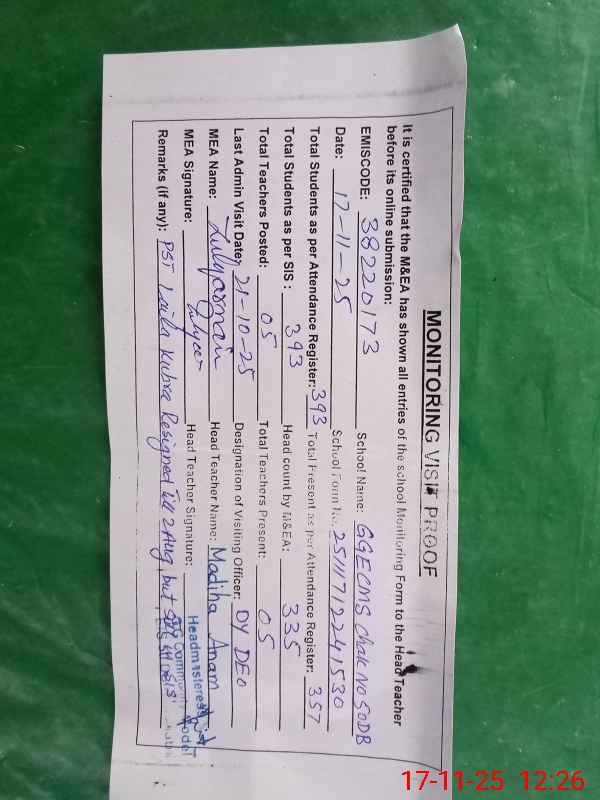 MONITORING VISIT PROOF
It is certified that the M&EA has shown all entries of the school Monitoring Form to the Head Teacher
before its online submission:
EMISCODE: 38220173 School Name: GGECMS Chak No 50DB
Date: 17-11-25 School Form No. 251117122241530
Total Students as per Attendance Register: 393 Total Present as per Attendance Register: 357
Total Students as per SIS : 393 Head count by M&EA: 335
Total Teachers Posted: 05 Total Teachers Present: 05
Last Admin Visit Date: 21-10-25 Designation of Visiting Officer: DY DEO
MEA Name: Head Teacher Name: Madiha Anam
MEA Signature: Head Teacher Signature:
Headmistress
Community Model
Remarks (if any): PST Laila Kubra Resigned Till 2 Aug, but
17-11-25 12:26